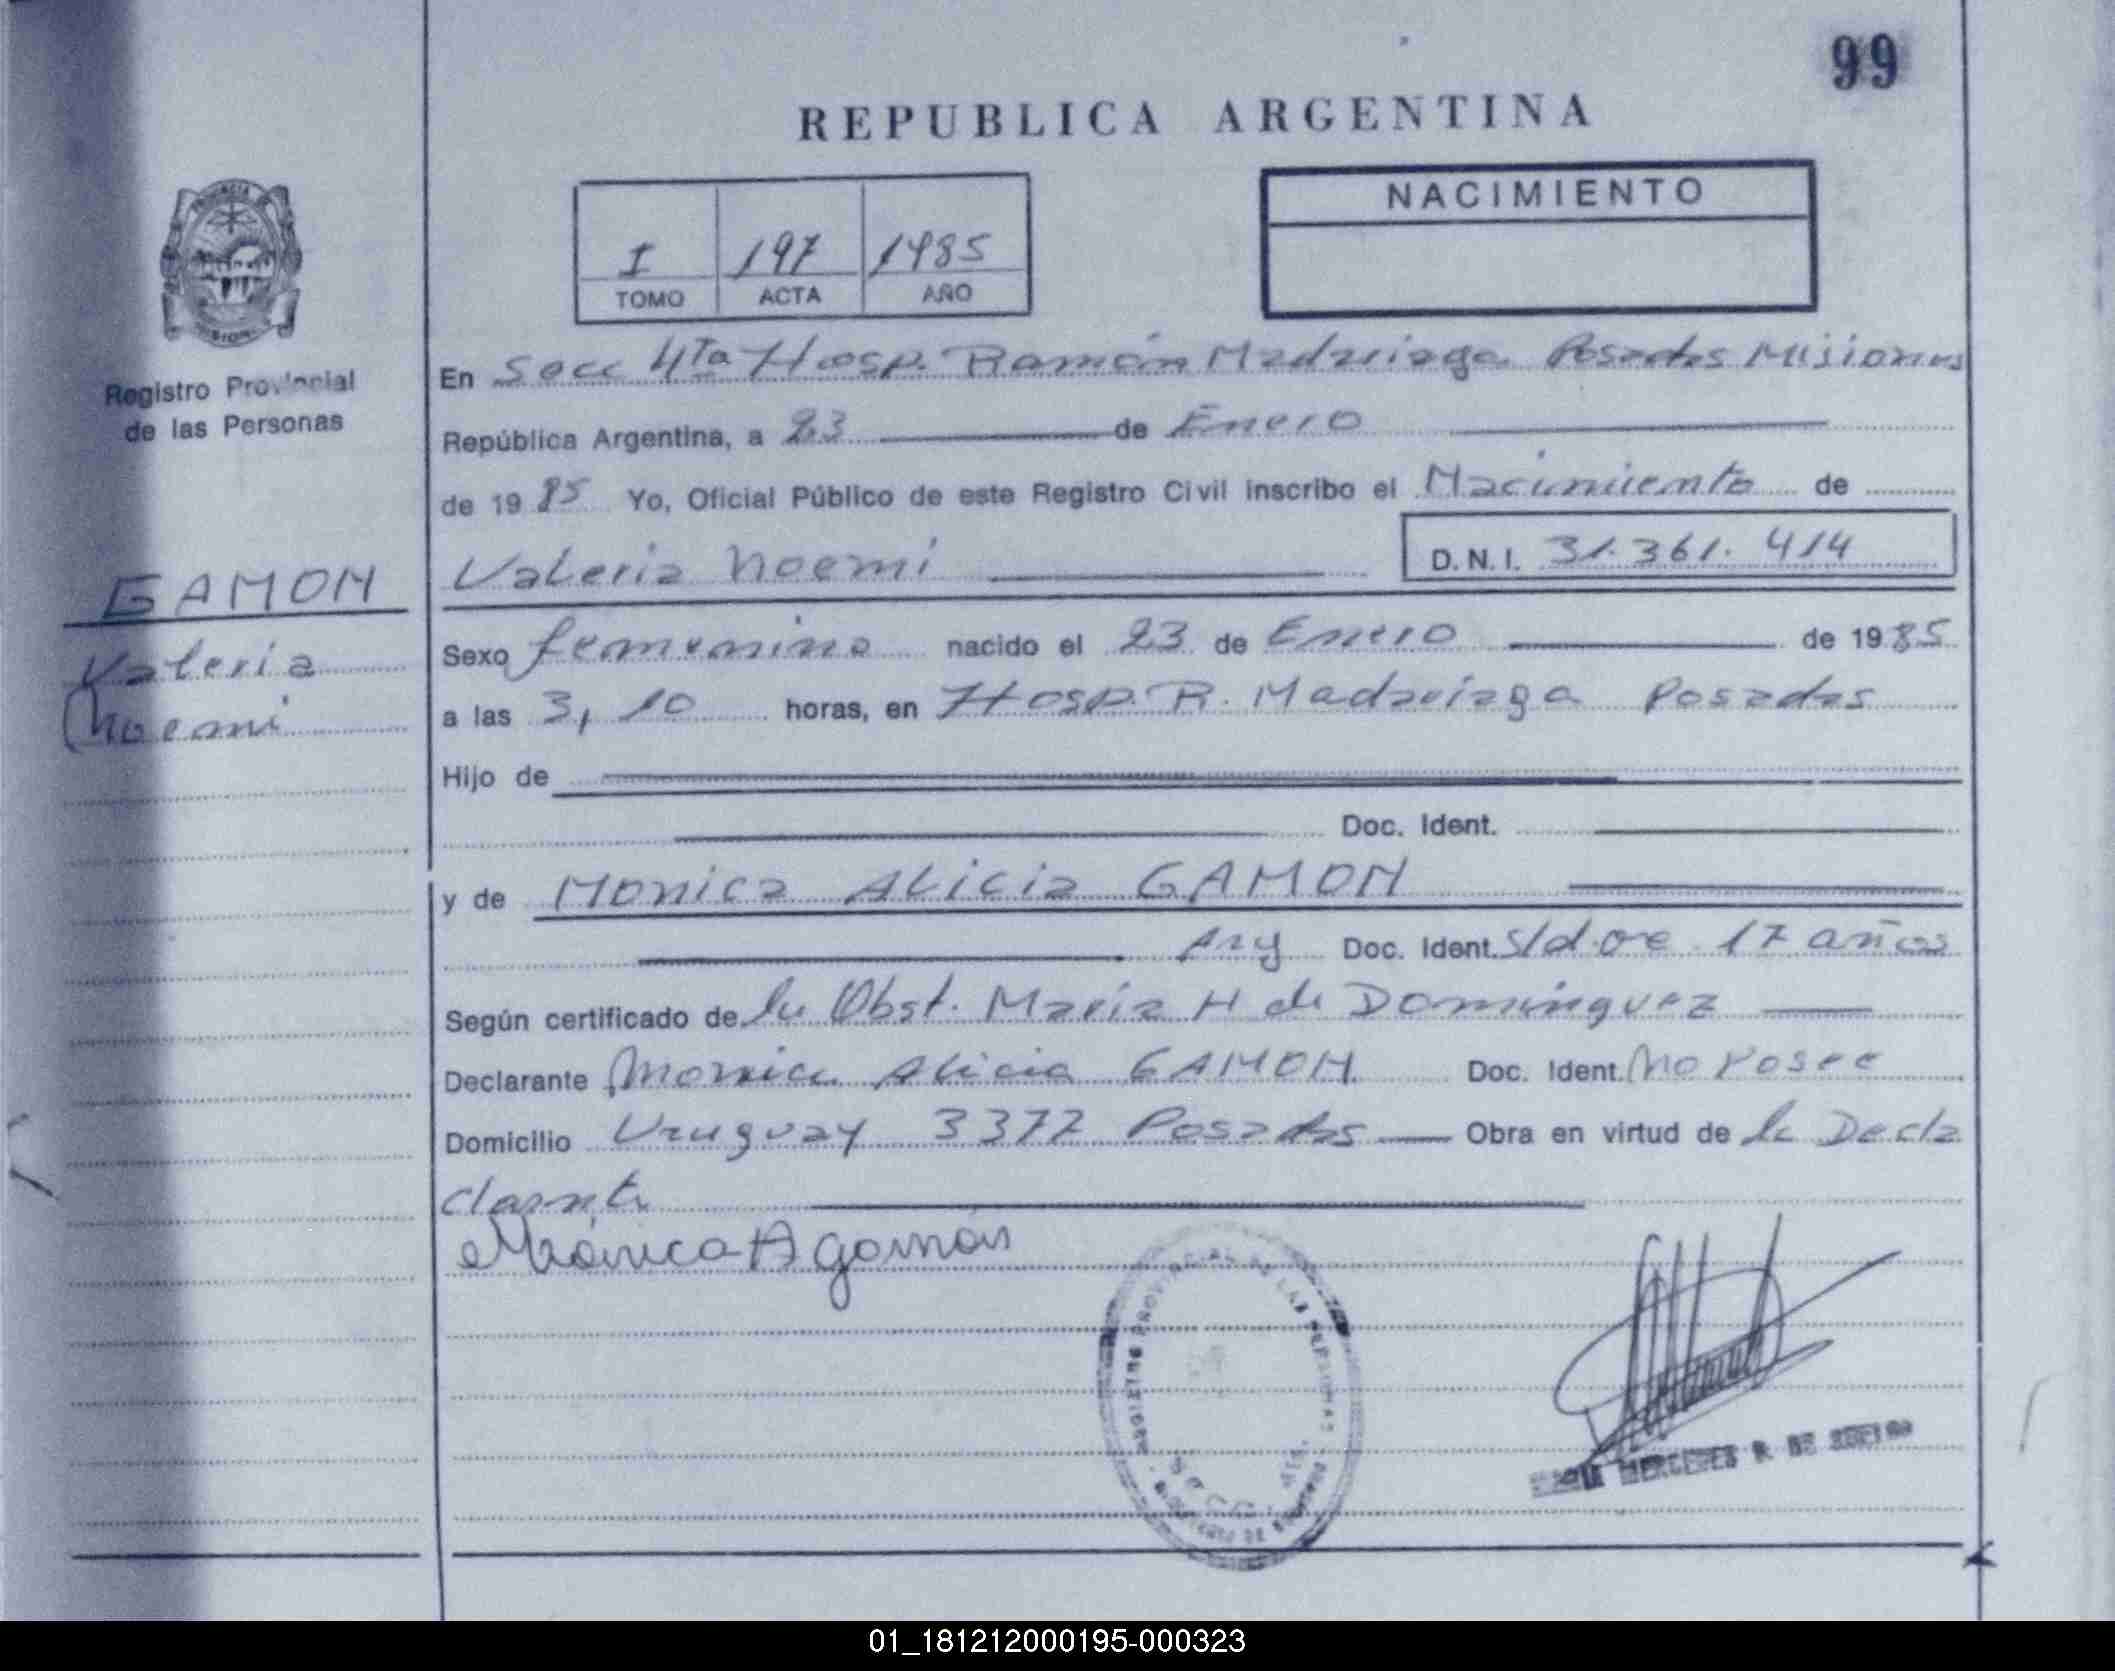 99
REPUBLICA ARGENTINA
I 197 1985
TOMO ACTA AÑO
NACIMIENTO
PROVINCIA
MISIONES
Registro Provincial
de las Personas
GAMON
Valeria
Noemi
En Secc 4Ta Hosp. Ramón Madariaga Posadas Misiones
República Argentina, a 23 de Enero
de 1985 Yo, Oficial Público de este Registro Civil inscribo el Nacimiento de
Valeria Noemi D.N.I. 31.361.414
Sexo femenino nacido el 23 de Enero de 1985
a las 3,10 horas, en Hosp. R. Madariaga Posadas
Hijo de
Doc. Ident.
y de Monica Alicia GAMON
Arg Doc. Ident. S/d de 17 años
Según certificado de la Obst. Maria H de Dominguez
Declarante Monica Alicia GAMON Doc. Ident. No Posee
Domicilio Uruguay 3377 Posadas Obra en virtud de la Decla
clarante
Mónica A gamón
MERCEDES R. DE
01_181212000195-000323